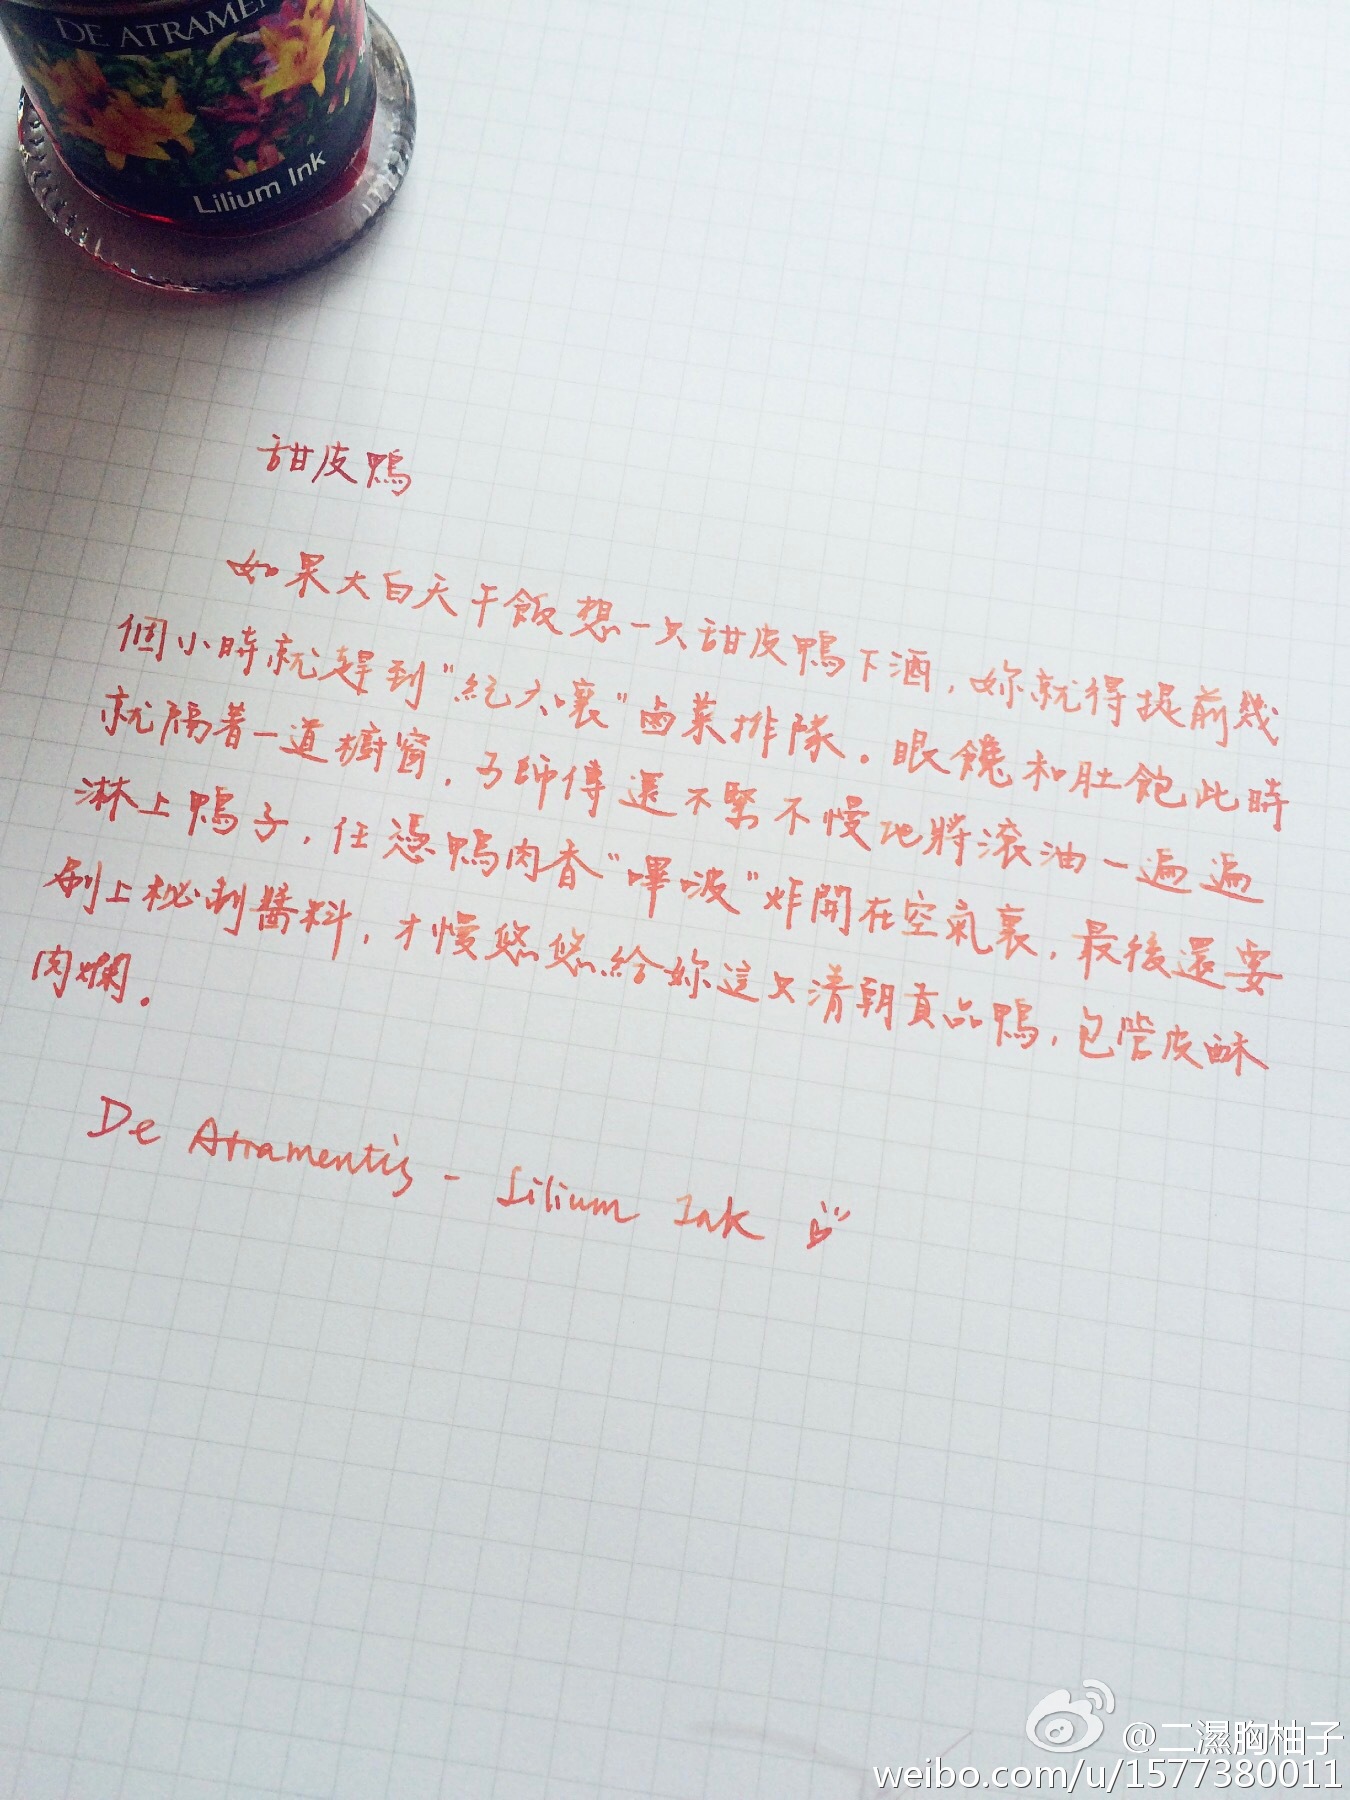 DE ATRAMEN
Lilium Ink
甜皮鴨
如果大白天午飯想一只甜皮鴨下酒，妳就得提前幾
個小時就趕到“紀六孃”鹵菜排隊。眼饞和肚飽此時
就隔著一道櫥窗，刀師傅還不緊不慢地將滾油一遍遍
淋上鴨子，任憑鴨肉香“嗶啵”炸開在空氣裏，最後還要
刷上秘制醬料，才慢悠悠給妳這只清朝貢品鴨，包管皮酥
肉嫻。
De Atramentis - Lilium Ink
@二濕胸柚子
weibo.com/u/1577380011